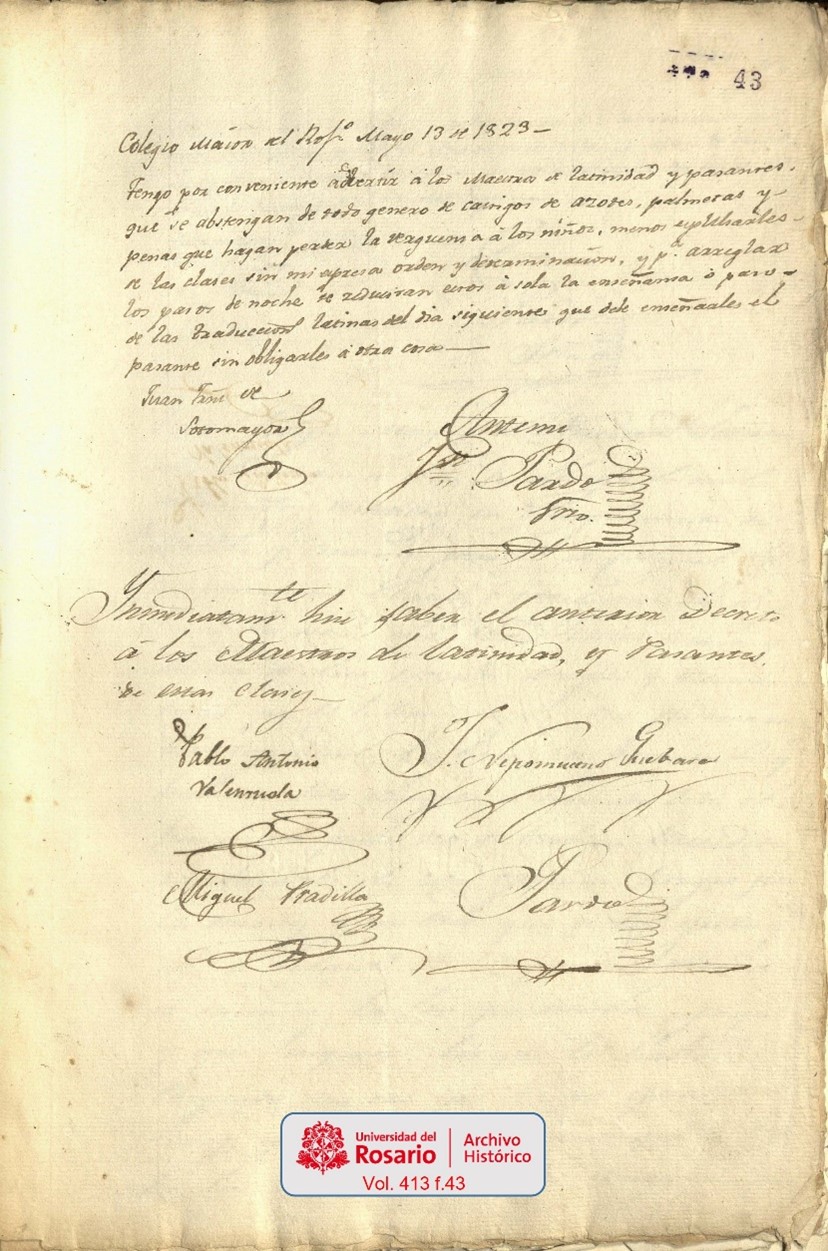 43
Colegio Maior del Rosº. Mayo 13 de 1823–
Tengo por conveniente advertir á los Maestros de latinidad y pasantes,
que se abstengan de todo genero de castigos de azotes, palmetas y
penas que hagan perder la verguensa á los niños, menos expulsarles
de las clases sin mi expresa orden y determinacion, y pª. arreglar
los pasos de noche se reduciran estos á sola la enseñansa ó paso
de las traduccions latinas del dia siguiente que debe enseñarles el
pasante sin obligarles á otra cosa—
Juan Fernz de
Sotomayor
Antemi
Jph Pardo
Srio.
Ynmediatamte hice saber el anterior Decreto
á los Maestros de latinidad, y Pasantes
de estas clases–
Pablo Antonio
Valenzuela
J. Nepomuceno Guebara
Miguel Pradilla
Pardo
Universidad del
Rosario
Archivo
Histórico
Vol. 413 f.43